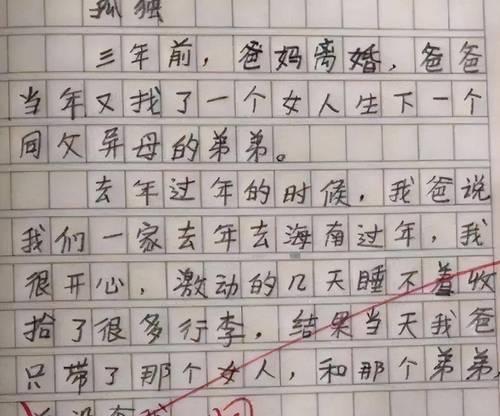 孤独
三年前，爸妈离婚，爸爸
当年又找了一个女人生下一个
同父异母的弟弟。
去年过年的时候，我爸说
我们一家去年去海南过年，我
很开心，激动的几天睡不着收
拾了很多行李，结果当天我爸
只带了那个女人，和那个弟弟，